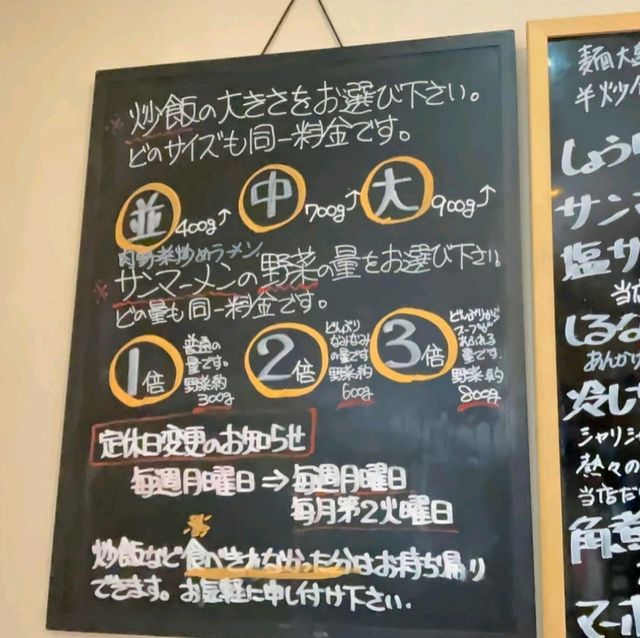 ※炒飯の大きさをお選び下さい。
どのサイズも同一料金です。
並 400g↑ 中 700g↑ 大 900g↑
肉野菜炒めラーメン
※サンマーメンの野菜の量をお選び下さい。
どの量も同一料金です。
1倍 普通の量です。野菜約300g
2倍 どんぶりなみなみの量です野菜約600g
3倍 どんぶりからスープがあふれる量です。野菜約800g
定休日変更のお知らせ
毎週月曜日⇒毎週月曜日
毎月第2火曜日
炒飯など食べきれなかった分はお持ち帰り
できます。お気軽に申し付け下さい。
麺大
半炒
しょう
サンマ
塩サ
当店
しるな
あんかけ
冷し
シャリシャ
熱々の
当店だ
角煮
マーボ